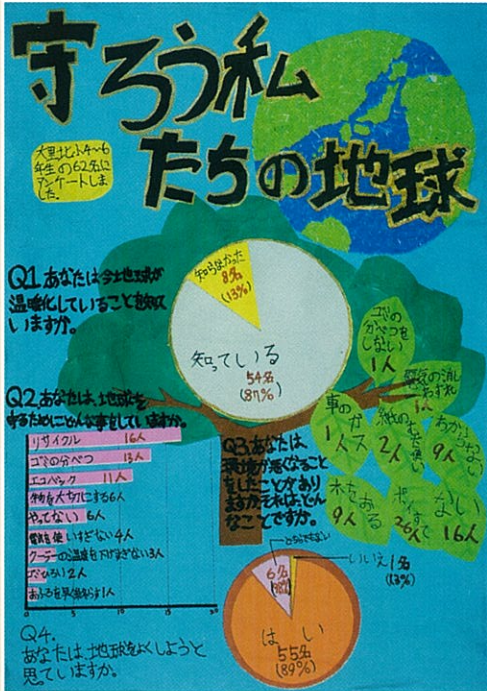 守ろう私
たちの地球
大里北小4〜6
年生の62名に
アンケートしま
した。
Q1 あなたは今地球が
温暖化していることを知って
いますか。
知らなかった
8名
(13%)
知っている
54名
(87%)
Q2.あなたは、地球を
守るためにどんな事をしていますか。
リサイクル 16人
ゴミの分べつ 13人
エコバック 11人
物を大切にする6人
やってない 6人
電気を使いすぎない4人
クーラーの温度を下げすぎない3人
ゴミひろい2人
1人
Q3.あなたは、
環境が悪くなること
をしたことがあり
ますか それは、どん
なことですか。
ゴミの
分べつを
しない
1人
電気の消し
わすれ
1人
車の
ガス
1人
紙のむだ使い
2人
わからない
9人
木をきる
9人
ポイすて
26人
ない
16人
Q4.
あなたは、地球をよくしようと
思っていますか。
どちらでもない
6名
いいえ1名
はい
55名
(89%)